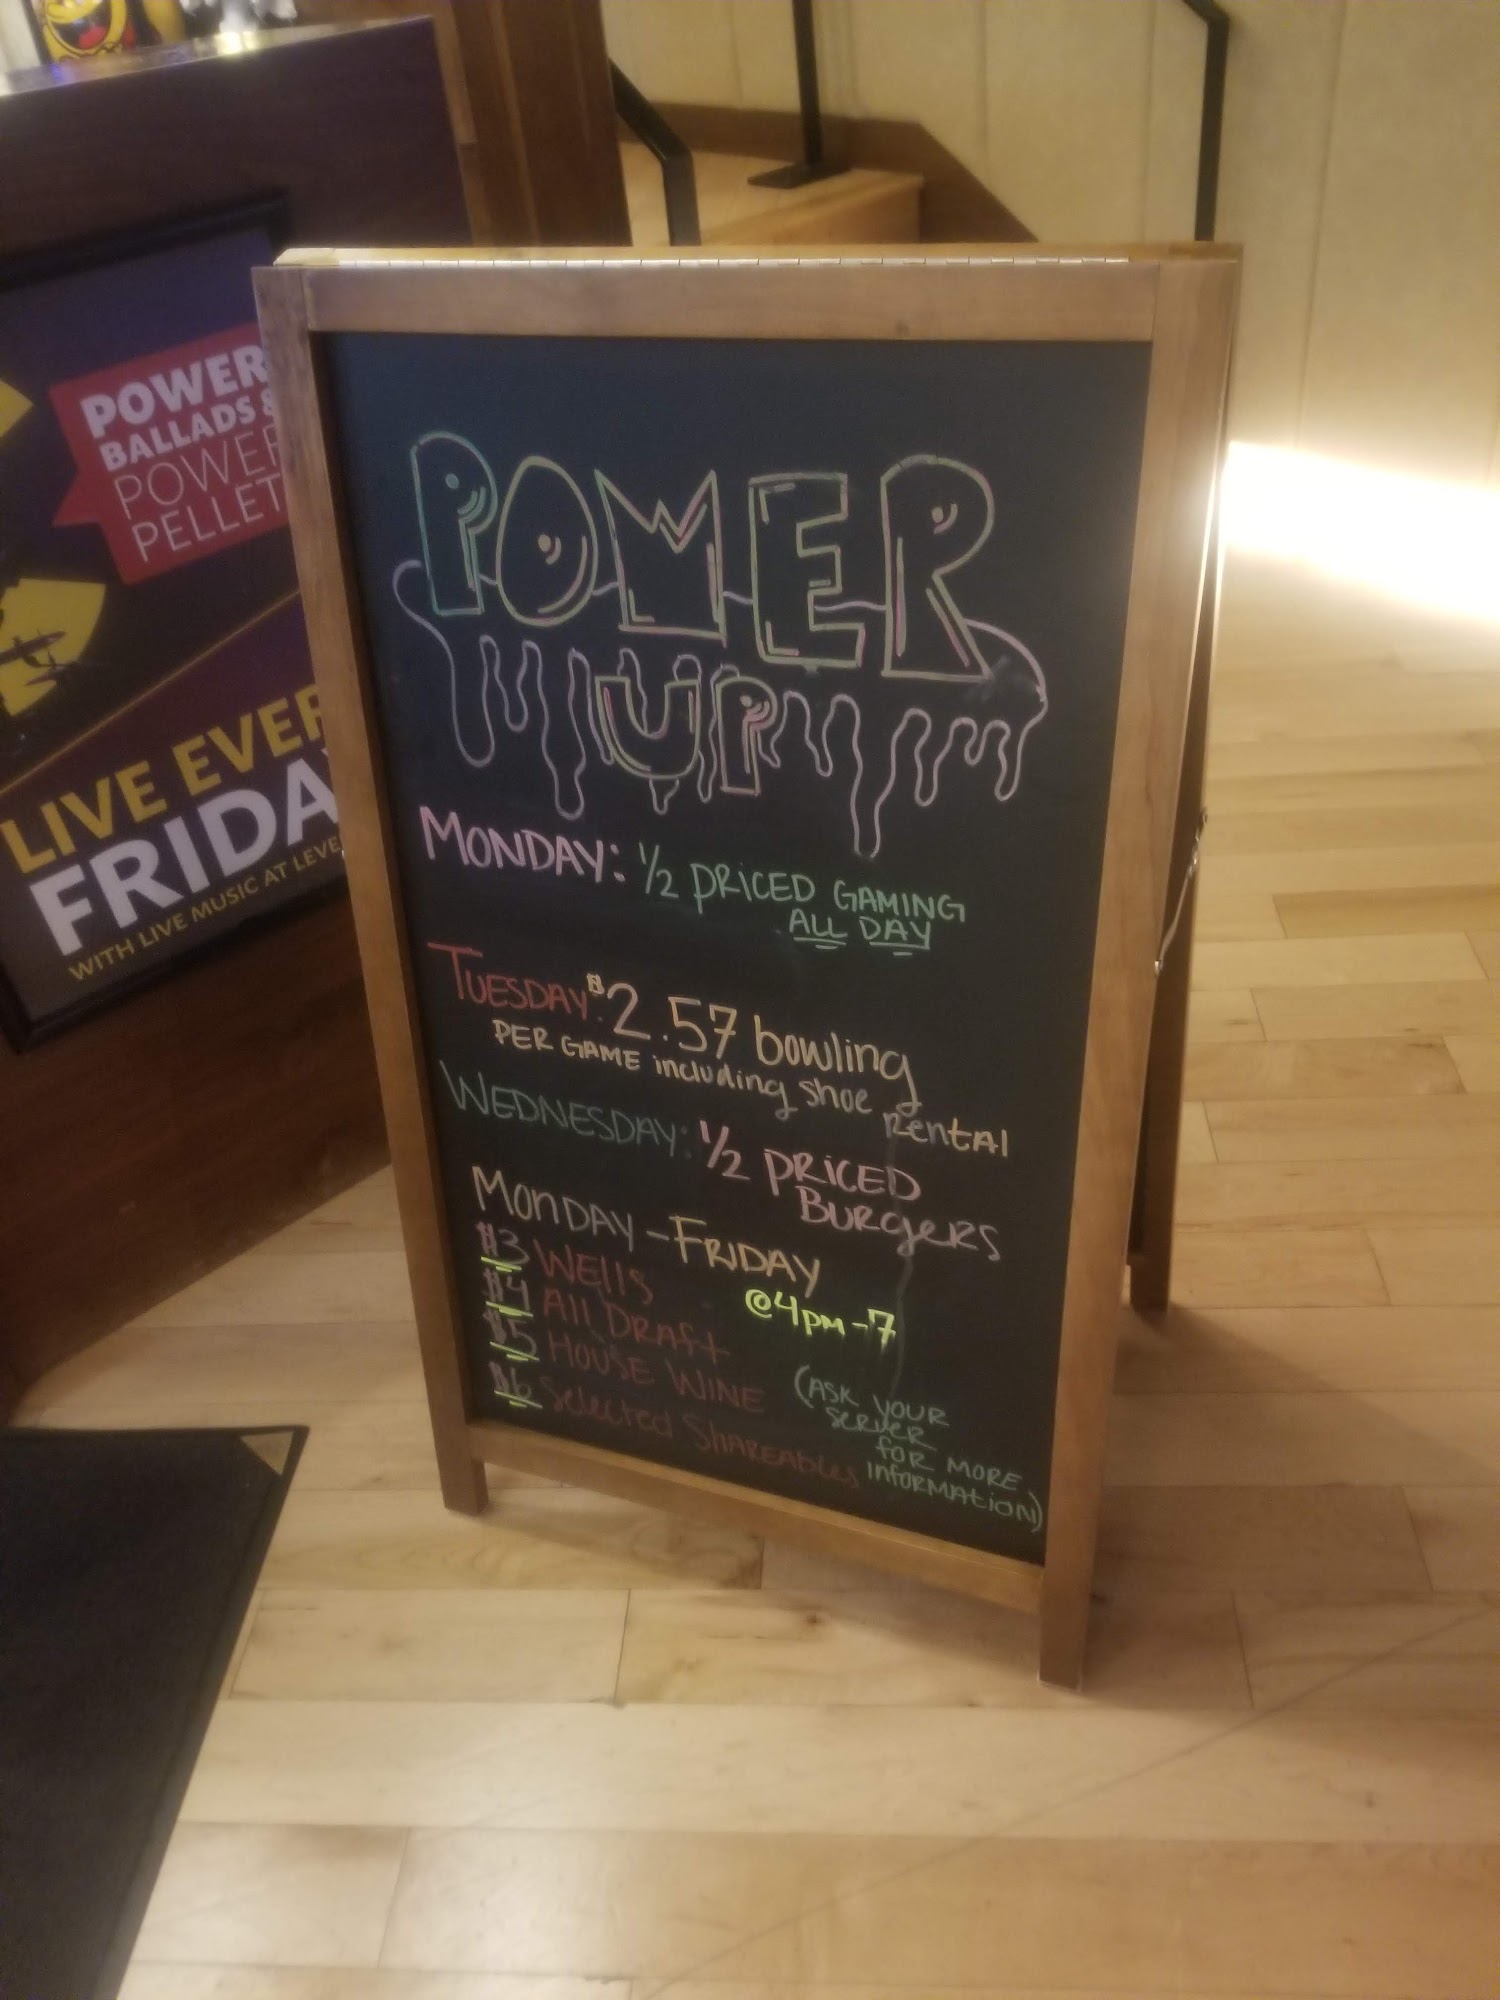 POWER
BALLADS &
POWER
PELLET
LIVE EVER
FRIDA
WITH LIVE MUSIC AT LEVE
POWER
UP
MONDAY: 1/2 PRiCED GAMING
ALL DAY
TUESDAY: $2.57 bowling
PER GAME including shoe rental
WEDNESDAY: 1/2 PRiCED
BurgeRS
MONDAY-FRiDAY
@4pm-7
$3 WEllS
$4 All DRAft
$5 HOUSE WiNE
$6 Selected ShAREAbles
(ASK YOUR
SERVER
foR MORE
iNfoRMAtioN)